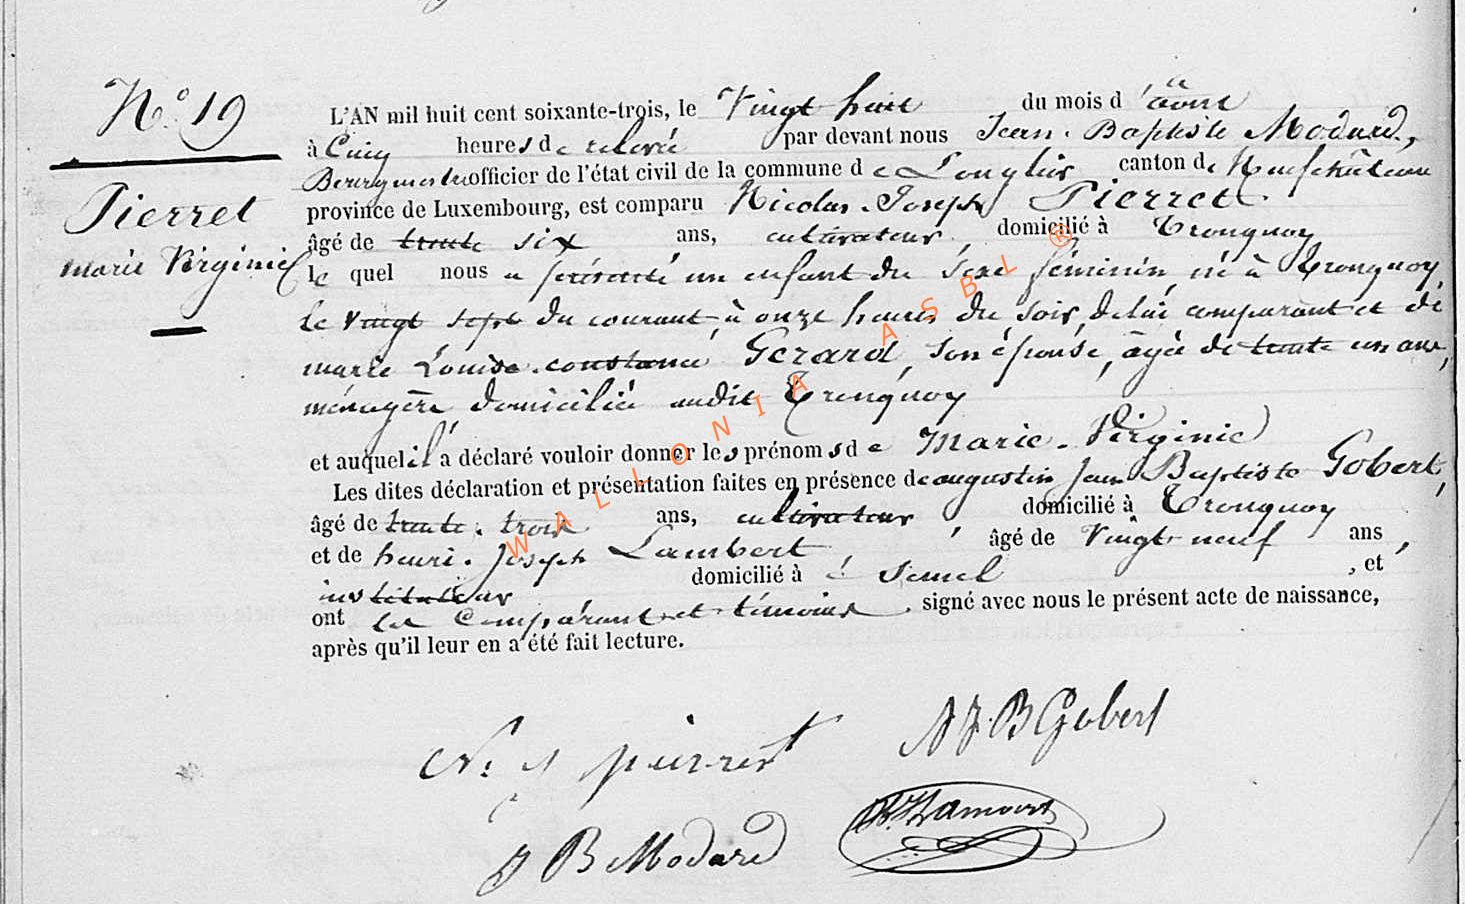 N.° 19
Pierret
Marie Virginie
L'AN mil huit cent soixante-trois, le Vingt huit du mois d'août
à Cinq heures de relevée par devant nous Jean-Baptiste Modard,
Bourgmestre officier de l'état civil de la commune de Longlier canton de Neufchâteau
province de Luxembourg, est comparu Nicolas-Joseph Pierret
âgé de trente six ans, cultivateur, domicilié à Tronquoy
le quel nous a présenté un enfant du sexe féminin né à Tronquoy
le vingt sept du courant, à onze heures du soir, de lui comparant et de
marie Louise constance Gerard, son épouse, âgée de trente un ans,
ménagère domiciliée audit Tronquoy
et auquel il a déclaré vouloir donner les prénoms de Marie-Virginie
Les dites déclaration et présentation faites en présence de augustin Jean Baptiste Gobert,
âgé de trente-trois ans, cultivateur, domicilié à Tronquoy
et de henri-Joseph Lambert, âgé de Vingt-neuf ans,
instituteur domicilié à Semel, et
ont les Comparant et témoins signé avec nous le présent acte de naissance,
après qu'il leur en a été fait lecture.
N. J pierret
A J. B Gobert
J B Modard
H. J. Lambert
WALLONIA ASBL ®